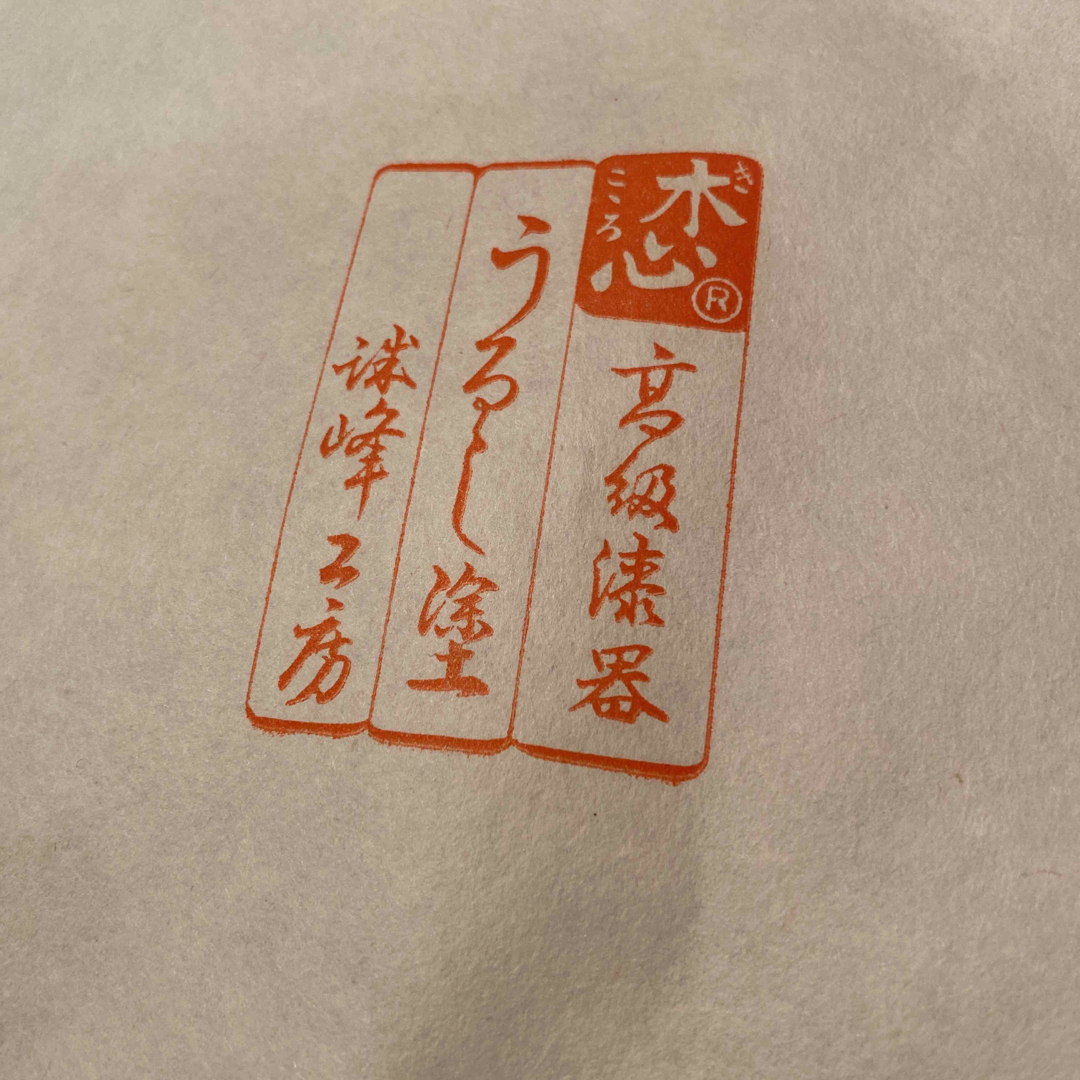 木心
き
こころ
®
高級漆器
うるし塗
誠峰工房